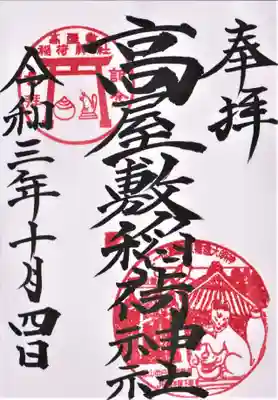 奉拝
高屋敷稲荷神社
令和三年十月四日
高屋敷
稲荷神社